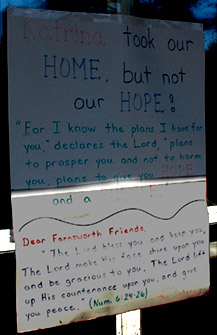 Katrina took our
HOME, but not
our HOPE!
"For I know the plans I have for
you," declares the Lord, "plans
to prosper you and not to harm
you, plans to give you HOPE
and a
Dear Farnsworth Friends,
"The Lord bless you and keep you,
The Lord make His face shine upon you
and be gracious to you, The Lord lift
up His countenance upon you, and give
you peace. (Num. 6:24-26)